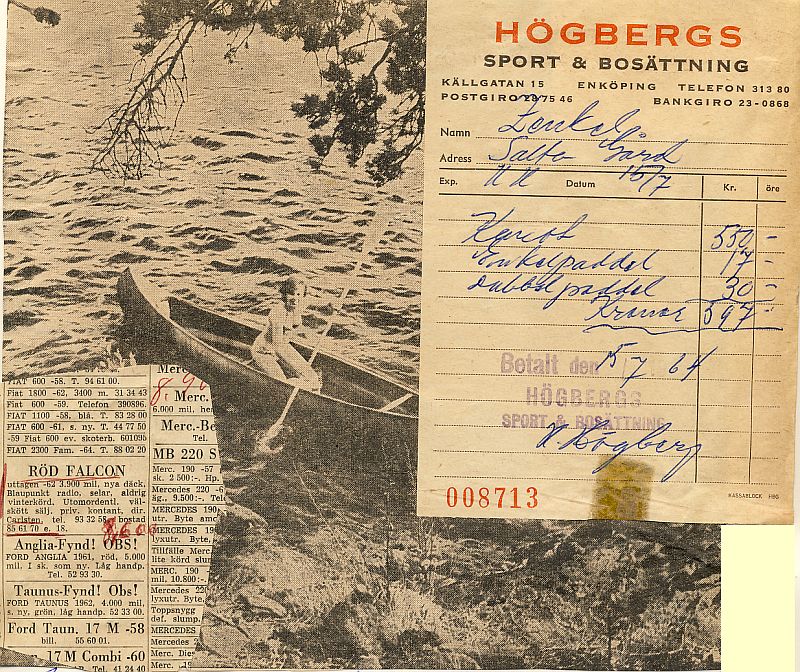 HÖGBERGS
SPORT & BOSÄTTNING
KÄLLGATAN 15 ENKÖPING TELEFON 313 80
POSTGIRO 28 75 46 BANKGIRO 23-0868
Namn Zenkel
Adress Salta Gård
Exp. Datum 15/7 Kr. öre
Kanot 550 -
Enkelpaddel 17 -
Dubbelpaddel 30 -
Kronor 597 -
Betalt den 15/7 64
HÖGBERGS
SPORT & BOSÄTTNING
Högberg
008713
KASSABLOCK HBG
FIAT 600 -58. T. 94 61 00.
Fiat 1800 -62, 3400 m. 31 34 43
Fiat 600 -59. Telefon 390896.
FIAT 1100 -58, blå. T. 83 28 00
FIAT 600 -61, s. ny. T. 44 77 50
-59 Fiat 600 ev. skoterb. 601095
FIAT 2300 Fam. -64. T. 88 02 20
RÖD FALCON
uttagen -62 3.900 mil, nya däck,
Blaupunkt radio, selar, aldrig
vinterkörd. Utomordentl. väl-
skött säljs. priv. kontant, dir.
Carlsten, tel. 93 32 58, bostad
85 61 70 e. 18.
Anglia-Fynd! OBS!
FORD ANGLIA 1961, röd, 5.000
mil. I sk. som ny. Låg handp.
Tel. 52 93 30.
Taunus-Fynd! Obs!
FORD TAUNUS 1962, 4.000 mil,
s. ny, grön, låg handp. 52 33 00.
Ford Taun. 17 M -58
bill. 55 60 01.
17 M Combi -60
Tel. 41 24 40
Merc
8.90
Merc.
6.000 mil, he
Merc.-Be
Tel.
MB 220 S
Merc. 190 -57
sk. 2 500:-. Hp.
Mercedes 220 -6
åg. 9.500:-. Tel.
MERCEDES 190
utr. Byte amc
MERCEDES 190
lyxutr. Byte,
Tillfälle Merc.
lite körd slum
MERC. 190 -
mil, 10.800:-.
Mercedes 220
lyxutr. Byte,
Toppsnygg
def. slump.
MERCEDES
Mercedes 2
Merc. Dies
Merc.